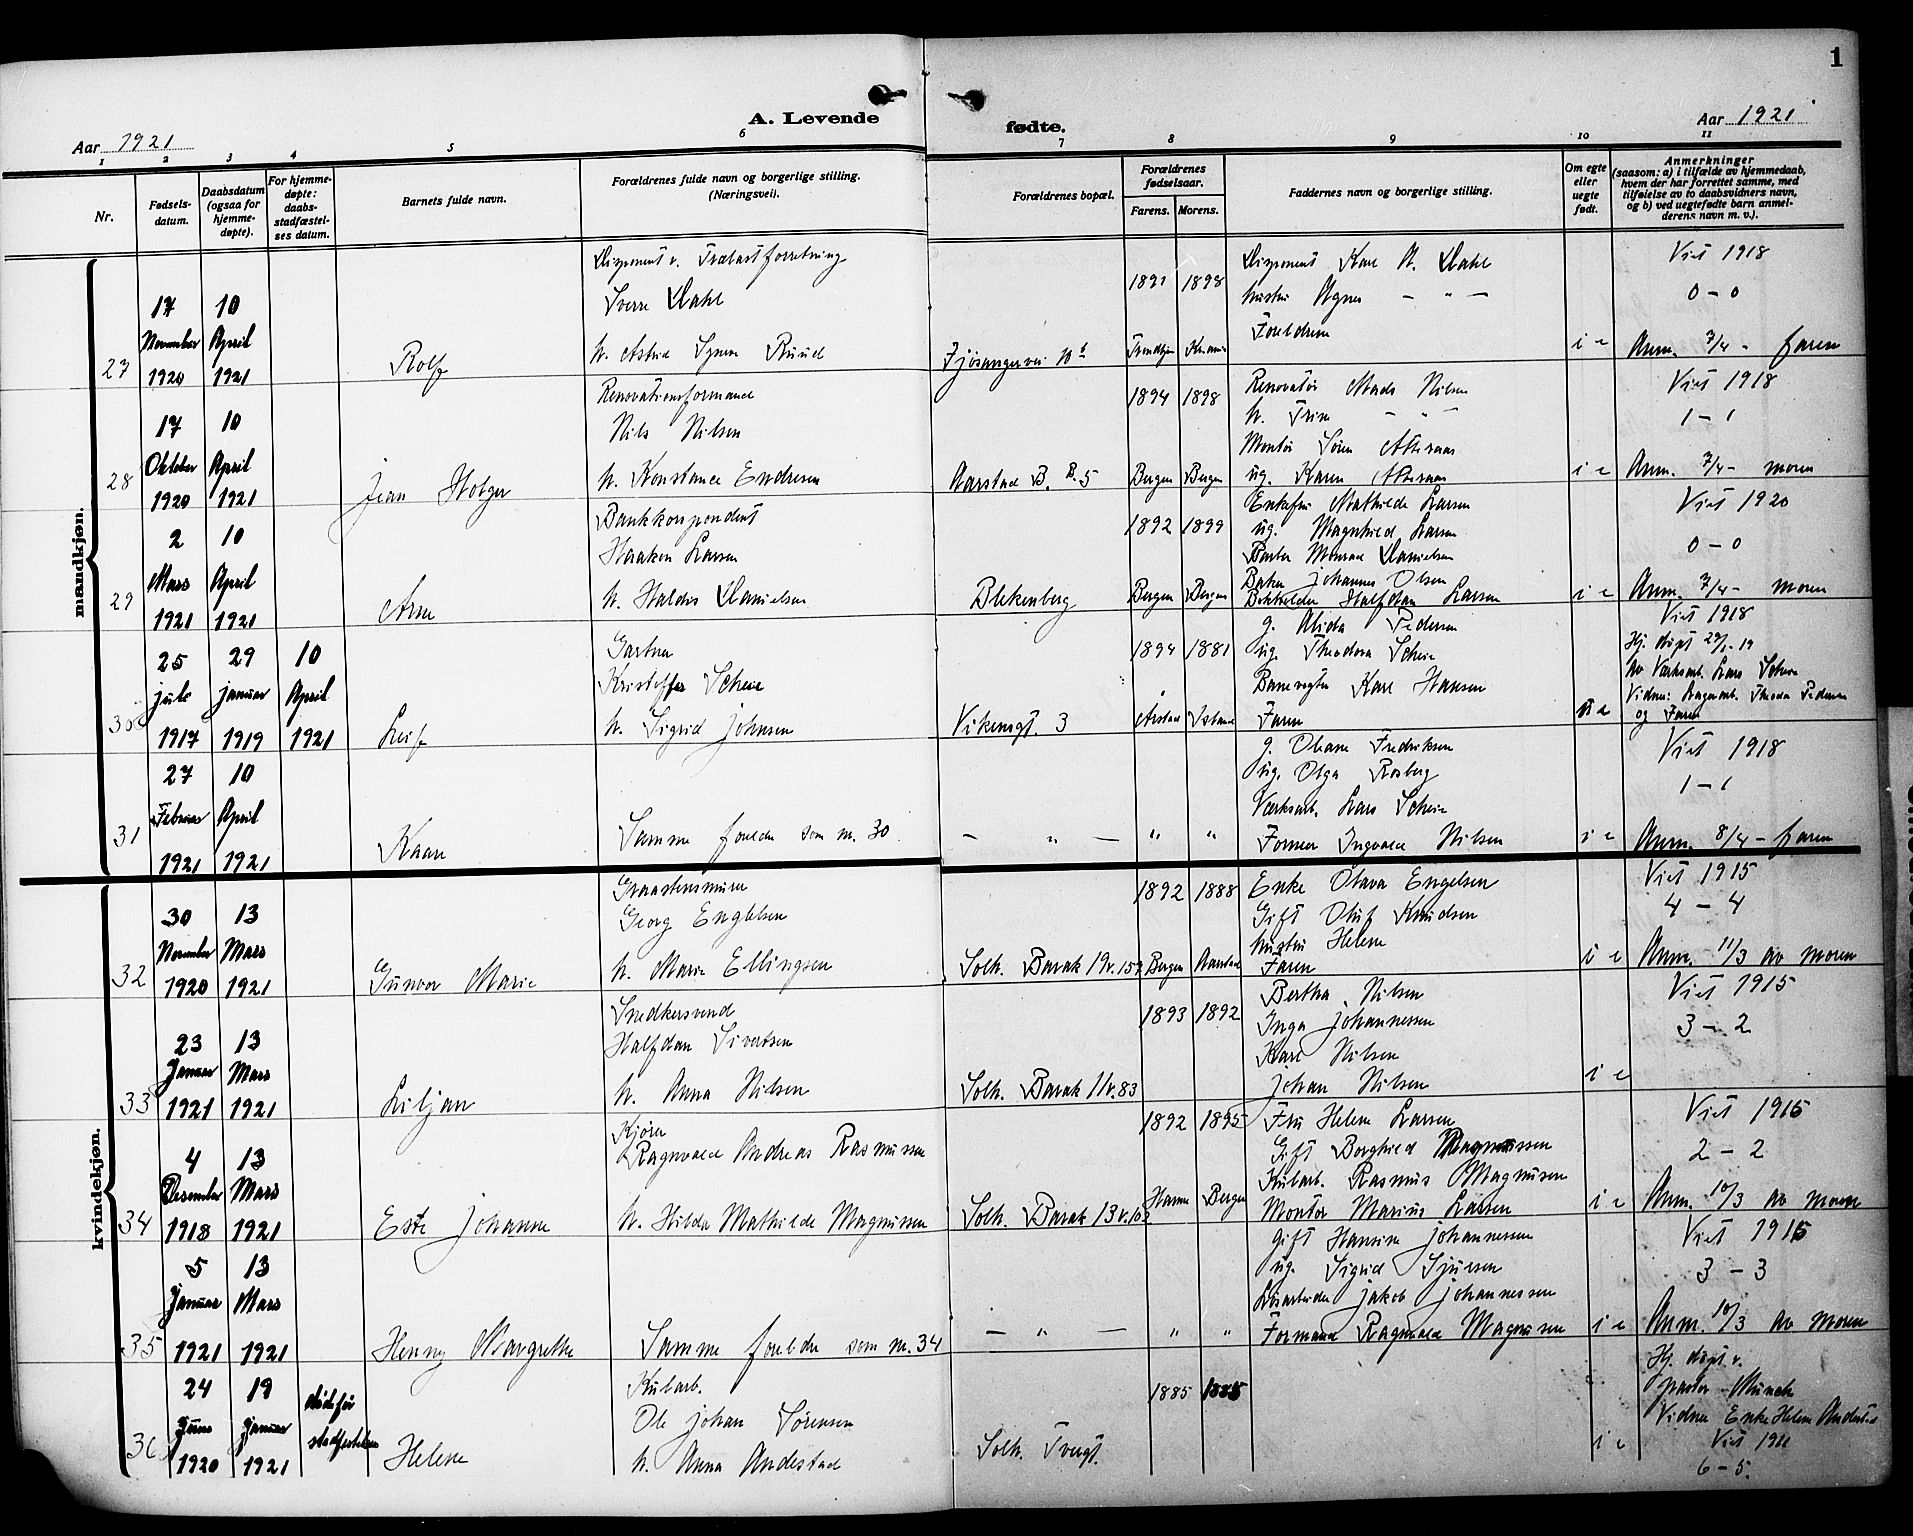 1
A. Levende
fødte.
Aar 1921
Aar 1921
1 2 3 4 5 6 7 8 9 10 11
Nr.
Fødsels-
datum.
Daabsdatum
(ogsaa for
hjemme-
døpte).
For hjemme-
døpte:
daabs-
stadfæstel-
ses datum.
Barnets fulde navn.
Forældrenes fulde navn og borgerlige stilling.
(Næringsvei).
Forældrenes bopæl.
Forældrenes
fødselsaar.
Farens. Morens.
Faddernes navn og borgerlige stilling.
Om egte
eller
uegte
født.
Anmerkninger
(saasom: a) i tilfælde av hjemmedaab,
hvem der har forrettet samme, med
tilføielse av to daabsvidners navn,
og b) ved uegtefødte barn anmel-
derens navn m. v.).
mandkjøn.
23
17
November
1920
10
April
1921
Rolf
Disponent v. Trælastforretning
Sverre Dahl
h. Astrid Signe Ruud
Fjøsangervei
1891 1898
Disponent Karl A. Dahl
hustru Agnes — " —
Foreldrene
i e
Viet 1918
0 – 0
Anm. 7/4 - faren
28
17
Oktober
1920
10
April
1921
Jean Holger
Renovationsformand
Nils Nilsen
h. Konstance Endresen
Aarstad B. B. 5
1894 1898
Bergen Bergen
Renovatør Mads Nilsen
h. Trine — " —
Montør Søren
ug. Karen
i e
Viet 1918
1 – 1
Anm. 7/4 - moren
29
2
Mars
1921
10
April
1921
Arne
Bankkorspondent
Haakon Larsen
h. Haldis Danielsen
Blekenberg
1892 1899
Bergen Bergen
Enkefru Mathilde Larsen
ug. Magnhild Larsen
Monrad Danielsen
Baker Johannes Olsen
Bokholder Halfdan Larsen
i e
Viet 1920
0 – 0
Anm. 7/4 - moren
30
25
juli
1917
29
januar
1919
10
April
1921
Leif
Gartner
Kristoffer Scheie
h. Sigrid Johnsen
Vikensgt. 3
1894 1881
Arstad
g. Alida Pedersen
ug. Theodora Scheie
Karl Hansen
Faren
Viet 1918
Hj. døpt 29/1-19
av Værksarb. Lars Scheie
Vidner: Lagerarb. Pedersen
og Faren
31
27
Februar
1921
10
April
1921
Kaare
Samme foreldre som nr. 30
— " — " "
g. Oliane Fredriksen
ug. Olga Rosberg
Værksarb. Lars Scheie
Former Ingvald Nilsen
i e
Viet 1918
1 – 1
Anm. 8/4 - faren
kvindekjøn.
32
30
November
1920
13
Mars
1921
Gunvor Marie
Graastensmurer
Georg Engelsen
h. Marie Ellingsen
Solh. Barak 19 v. 157
1892 1888
Bergen Aarstad
Enke Olava Engelsen
Gift Oluf Knudsen
hustru Helene
Faren
i e
Viet 1915
4 – 4
Anm. 11/3 av moren
33
23
Januar
1921
13
Mars
1921
Liljan
Snedkersvend
Halfdan Sivertsen
h. Anna Nilsen
Solh. Barak 11 v. 83
1893 1892
Bertha Nilsen
Inga Johannessen
Karl Nilsen
Johan Nilsen
i e
Viet 1915
3 – 2
34
4
Desember
1918
13
Mars
1921
Johanne
Kjører
Ragnvald Andreas Rasmussen
h. Hilda Mathilde Magnussen
Solh. Barak 13 v. 102
1892 1895
Bergen
Fru Helene Larsen
Gift Borghild Magnussen
Kularb. Rasmus Magnussen
Montør Marius Larsen
i e
Viet 1915
2 – 2
Anm. 10/3 av moren
35
5
Januar
1921
13
Mars
1921
Henny Margrethe
Samme foreldre som nr. 34
— " — " "
Gift Hansine Johannessen
ug. Sigrid Sjursen
Løsarbeider Jakob Johannessen
Formand Ragnvald Magnussen
i e
Viet 1915
3 – 3
Anm. 10/3 av moren
36
24
Juni
1920
19
januar
1921
død før
stadfestelsen
Helene
Kularb.
Ole Johan Sørensen
h. Anna Andestad
Solh. Tvergt.
1885 1885
i e
Hj. døpt v.
pastor Munch
Vidner Enke Helene
Viet 1911
6 – 5.